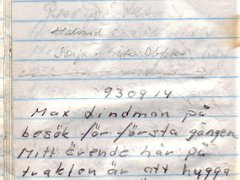 Halmid
Sonja
930914
Max Lindman på
besök för första gången
Mitt ärende här på
trakten är att hygga